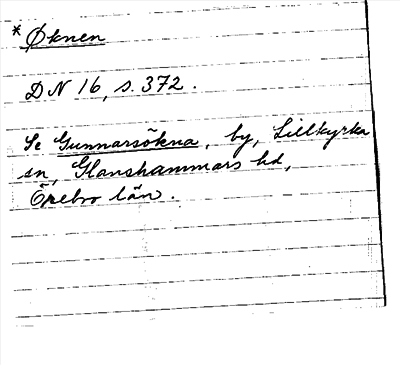 * Øknen
DN 16, s. 372.
Se Gunnarsökna, by, Lillkyrka
sn, Glanshammars hd,
Örebro län.